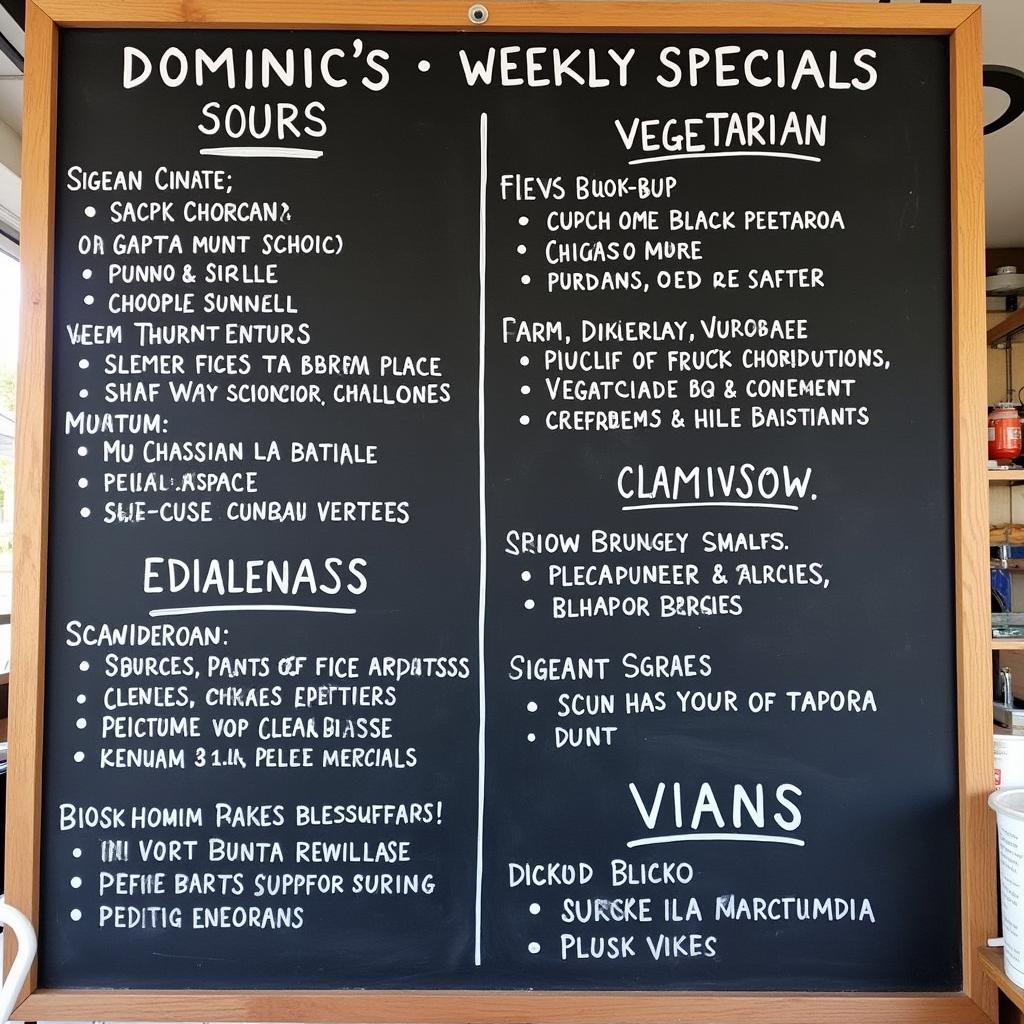 DOMINIC'S • WEEKLY SPECIALS
SOURS
SIGEAN CINATE;
• SACPK CHORCAN
OR GAPTA MUNT SCHOIC)
• PUNNO & SIRLLE
• CHOOPLE SUNNELL
VEEM THURNT ENTURS
• SLEMER FICES TA BBRFM PLACE
• SHAF WAY SCIONCIOR, CHALLONES
MUATUM:
• MU CHASSIAN LA BATIALE
• ASPACE
• CUNBAU VERTEES
EDIALENASS
SCANIDEROAN:
• SBURCES, PANTS OF FICE ARDATSSS
• CLENEES, CHKAES EPETTIERS
• PEICTUME VOP CLEAR BIASSE
• KENUAM PELEE MERCIALS
BIOSK HOMIM RAKES BLESSUFFARS!
• VORT BUNTA REWILLASE
• PEFIIE BARTS SUPPFOR SURING
• PEDITIG ENEORANS
VEGETARIAN
FIEVS BUOK-BUP
• CUPCH OME BLACK PEETAROA
• CHIGASO MURE
• PURDANS, OED RE SAFTER
FARM, DIKIERLAY, VUROBAEE
• PIUCLIF OF FRUCK CHORIDUTIONS,
• VEGATCIADE BQ & CONEMENT
• CREFRDEMS & HILE BAISTIANTS
CLAMIVSOW.
SRIOW BRUNGEY SMALFS.
• PLECAPUNEER & ALRCIES,
• BLHAPOR BERGIES
SIGEANT SGRAES
• SCUN HAS YOUR OF TAPORA
• DUNT
VIANS
DICKOD BLICKO
• SURCKE ILA MARCTUMDIA
• PLUSK VIKES